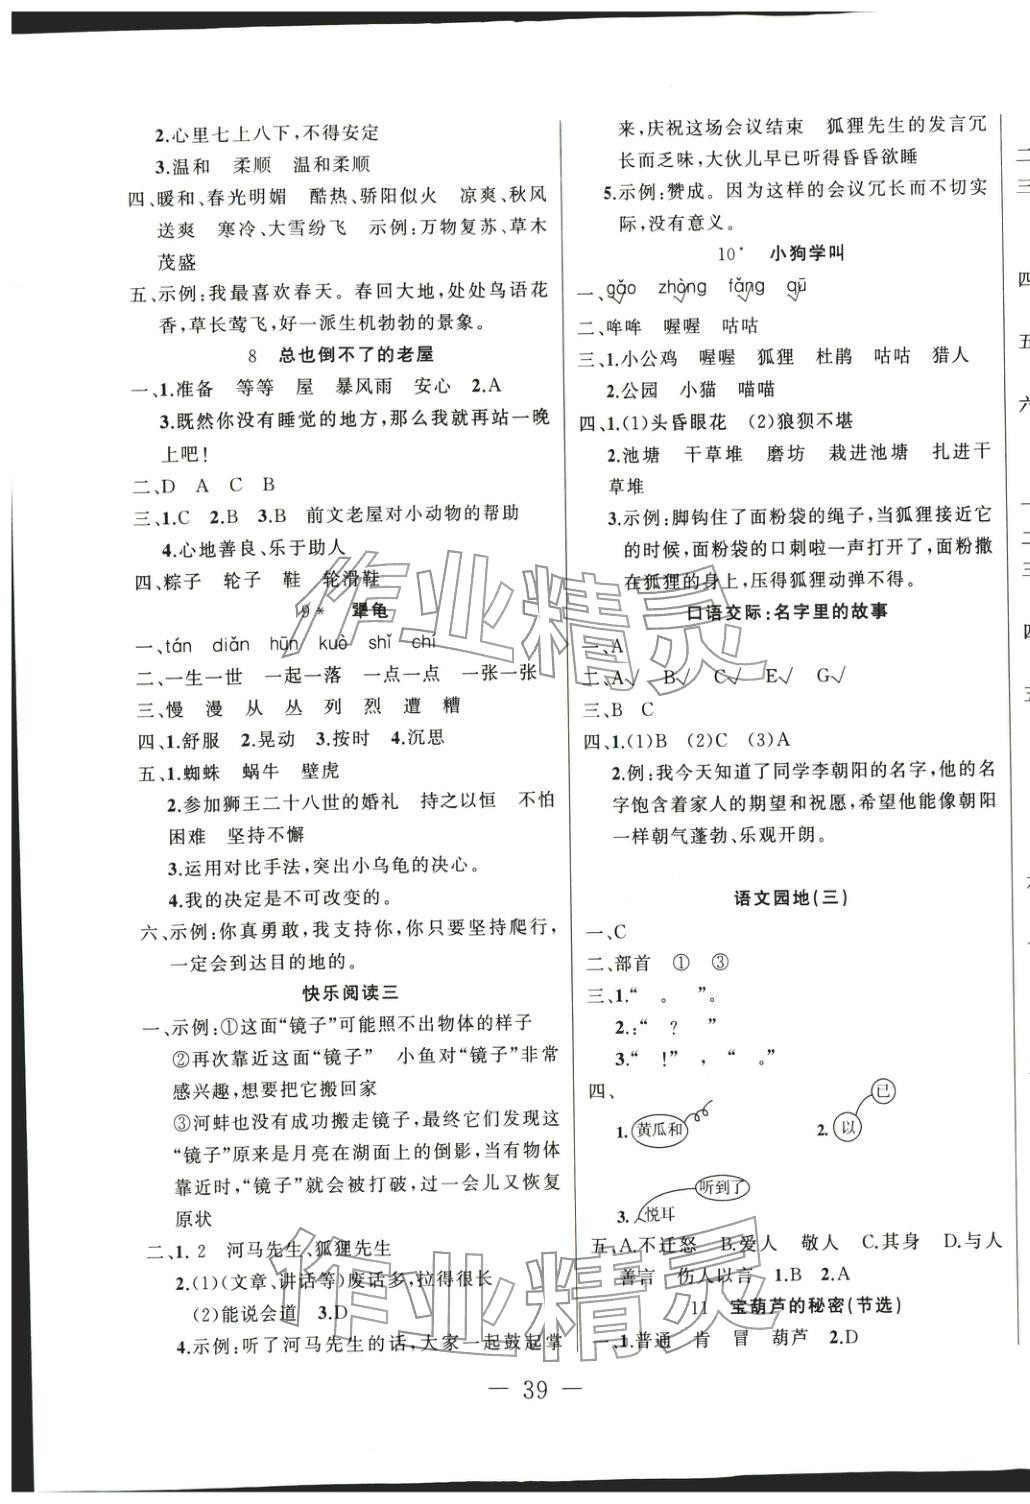 2.心里七上八下,不得安定
3.温和 柔顺 温和柔顺
四、暖和、春光明媚 酷热、骄阳似火 凉爽、秋风
送爽 寒冷、大雪纷飞 示例:万物复苏、草木
茂盛
五、示例:我最喜欢春天。春回大地,处处鸟语花
香,草长莺飞,好一派生机勃勃的景象。
8 总也倒不了的老屋
一、1.准备 等等 屋 暴风雨 安心 2.A
3.既然你没有睡觉的地方,那么我就再站一晚
上吧!
二、D A C B
三、1.C 2.B 3.B 前文老屋对小动物的帮助
4.心地善良、乐于助人
四、粽子 轮子 鞋 轮滑鞋
9* 犟龟
一、tán diǎn hūn kuò shǐ chí
二、一生一世 一起一落 一点一点 一张一张
三、慢 漫 从 丛 列 烈 遭 糟
四、1.舒服 2.晃动 3.按时 4.沉思
五、1.蜘蛛 蜗牛 壁虎
2.参加狮王二十八世的婚礼 持之以恒 不怕
困难 坚持不懈
3.运用对比手法,突出小乌龟的决心。
4.我的决定是不可改变的。
六、示例:你真勇敢,我支持你,你只要坚持爬行,
一定会到达目的地的。
快乐阅读三
一、示例:①这面“镜子”可能照不出物体的样子
②再次靠近这面“镜子” 小鱼对“镜子”非常
感兴趣,想要把它搬回家
③河蚌也没有成功搬走镜子,最终它们发现这
“镜子”原来是月亮在湖面上的倒影,当有物体
靠近时,“镜子”就会被打破,过一会儿又恢复
原状
二、1. 2 河马先生、狐狸先生
2.(1)(文章、讲话等)废话多,拉得很长
(2)能说会道 3.D
4.示例:听了河马先生的话,大家一起鼓起掌
来,庆祝这场会议结束 狐狸先生的发言冗
长而乏味,大伙儿早已听得昏昏欲睡
5.示例:赞成。因为这样的会议冗长而不切实
际,没有意义。
10* 小狗学叫
一、gǎo zhòng fǎng qū
二、哞哞 喔喔 咕咕
三、1.小公鸡 喔喔 狐狸 杜鹃 咕咕 猎人
2.公园 小猫 喵喵
四、1.(1)头昏眼花 (2)狼狈不堪
2.池塘 干草堆 磨坊 栽进池塘 扎进干
草堆
3.示例:脚钩住了面粉袋的绳子,当狐狸接近它
的时候,面粉袋的口刺啦一声打开了,面粉撒
在狐狸的身上,压得狐狸动弹不得。
口语交际:名字里的故事
一、A
二、A√ B√ C√ E√ G√
三、B C
四、1.(1)B (2)C (3)A
2.例:我今天知道了同学李朝阳的名字,他的名
字饱含着家人的期望和祝愿,希望他能像朝阳
一样朝气蓬勃、乐观开朗。
语文园地(三)
一、C
二、部首 ① ③
三、1.“ 。 ”。
2.:“ ? ”
3.“ !” , “ 。”
四、
1.黄瓜和 2.以 已
3.悦耳 听到了
五、A.不迁怒 B.爱人 敬人 C.其身 D.与人
善言 伤人以言 1.B 2.A
11 宝葫芦的秘密(节选)
一、1.普通 肯 冒 葫芦 2.D
— 39 —
二
三
四
五
六
一
二
三
四
五
作业精灵
作业精灵